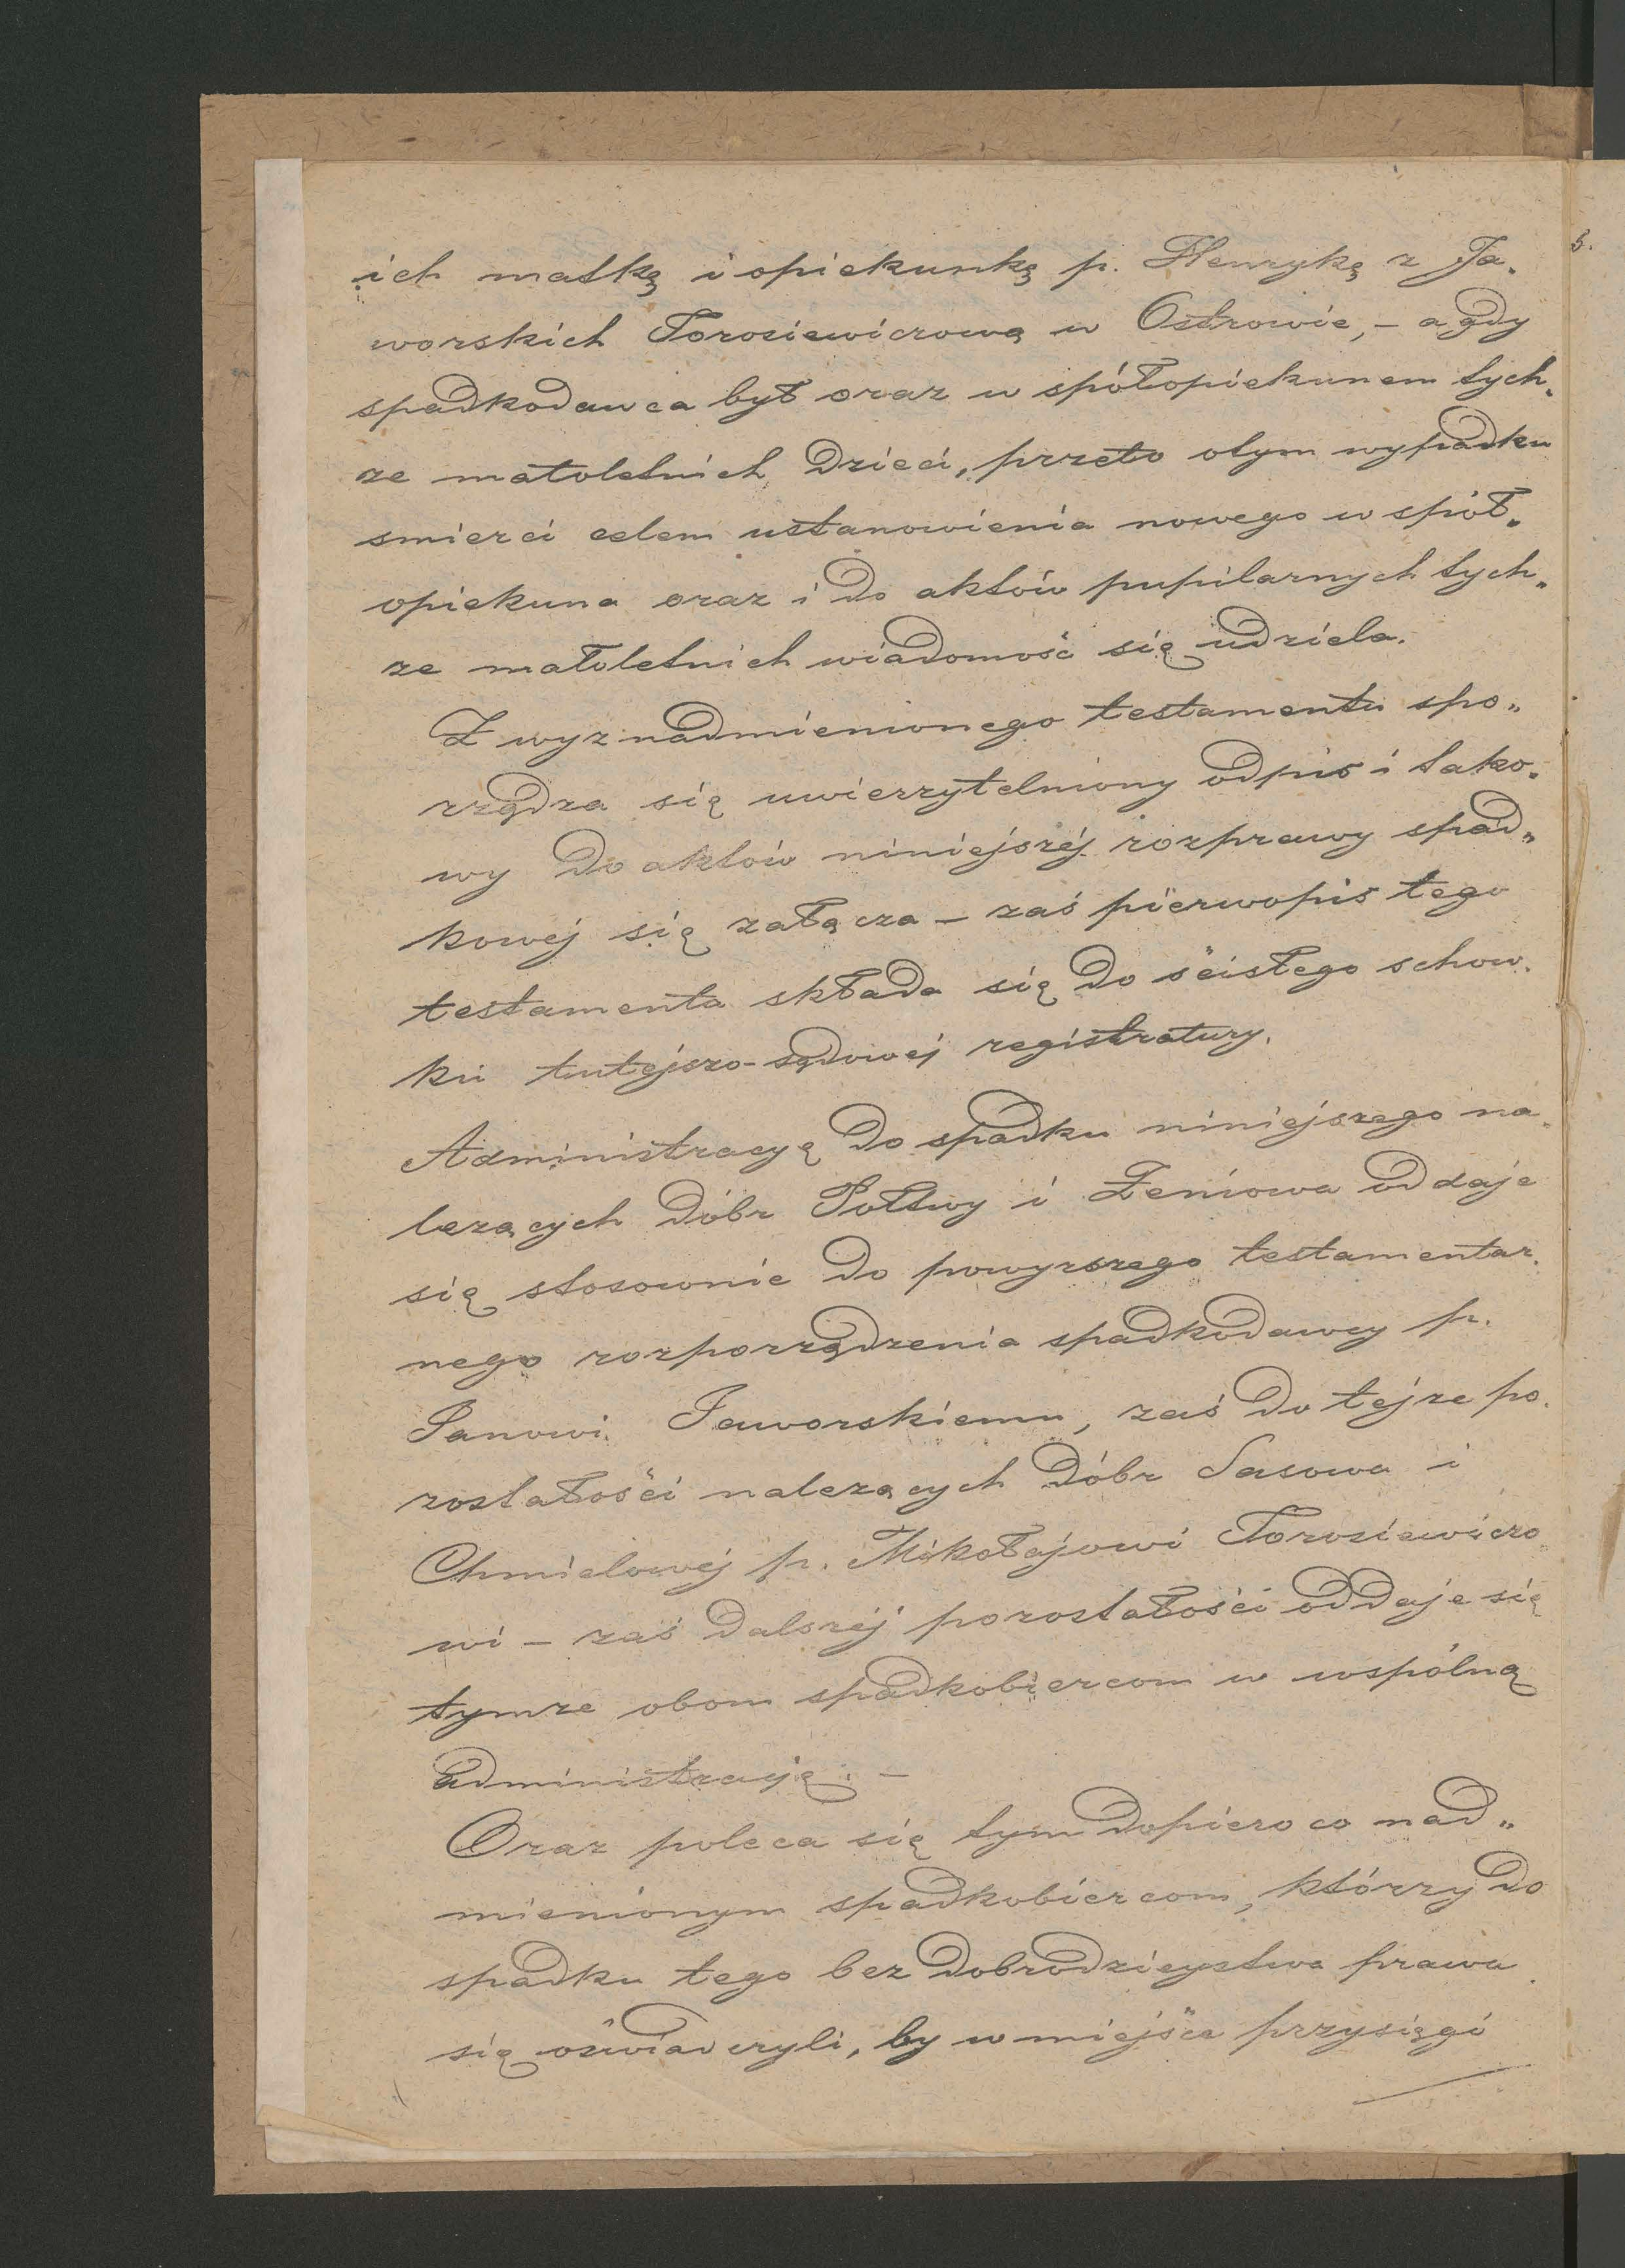 ich matkę i opiekunkę p. Henrykę z Ja„
worskich Torosiewiczową w Ostrowie, – a gdy
spadkodawca był oraz w spółopiekunem tych„
ze małoletnich dzieci, przeto o tym wypadku
smierci celem ustanowienia nowego w spół„
opiekuna oraz i do aktów pupilarnych tych„
ze małoletnich wiadomość się udziela.
Z wyz nadmienionego testamentu spo„
rządza się uwierzytelniony odpis i tako„
wy do aktów niniejszéj rozprawy spad„
kowéj się załącza – zaś pierwopis tego
testamenta składa się do ścisłego schow„
ku tutejszo-sądowéj registratury.
Administracyę do spadku niniejszego na„
lezących dóbr Połtwy i Zeniowa oddaje
się stosownie do powyzszego testamentar„
nego rozporządzenia spadkodawcy p.
Janowi Jaworskiemu, zaś do tejze po„
zostałości nalezących dóbr Sasowa i
Chmielowéj p. Mikołajowi Torosiewiczo
wi – zaś dalszéj pozostałości oddaje się
tymze obom spadkobiercom w wspólną
administracyję. –
Oraz poleca się tym dopiero co nad„
mienionym spadkobiercom, którzy do
spadku tego bez dobrodzieystwa prawa
się oświadczyli, by w miejsce przysięgi
5.